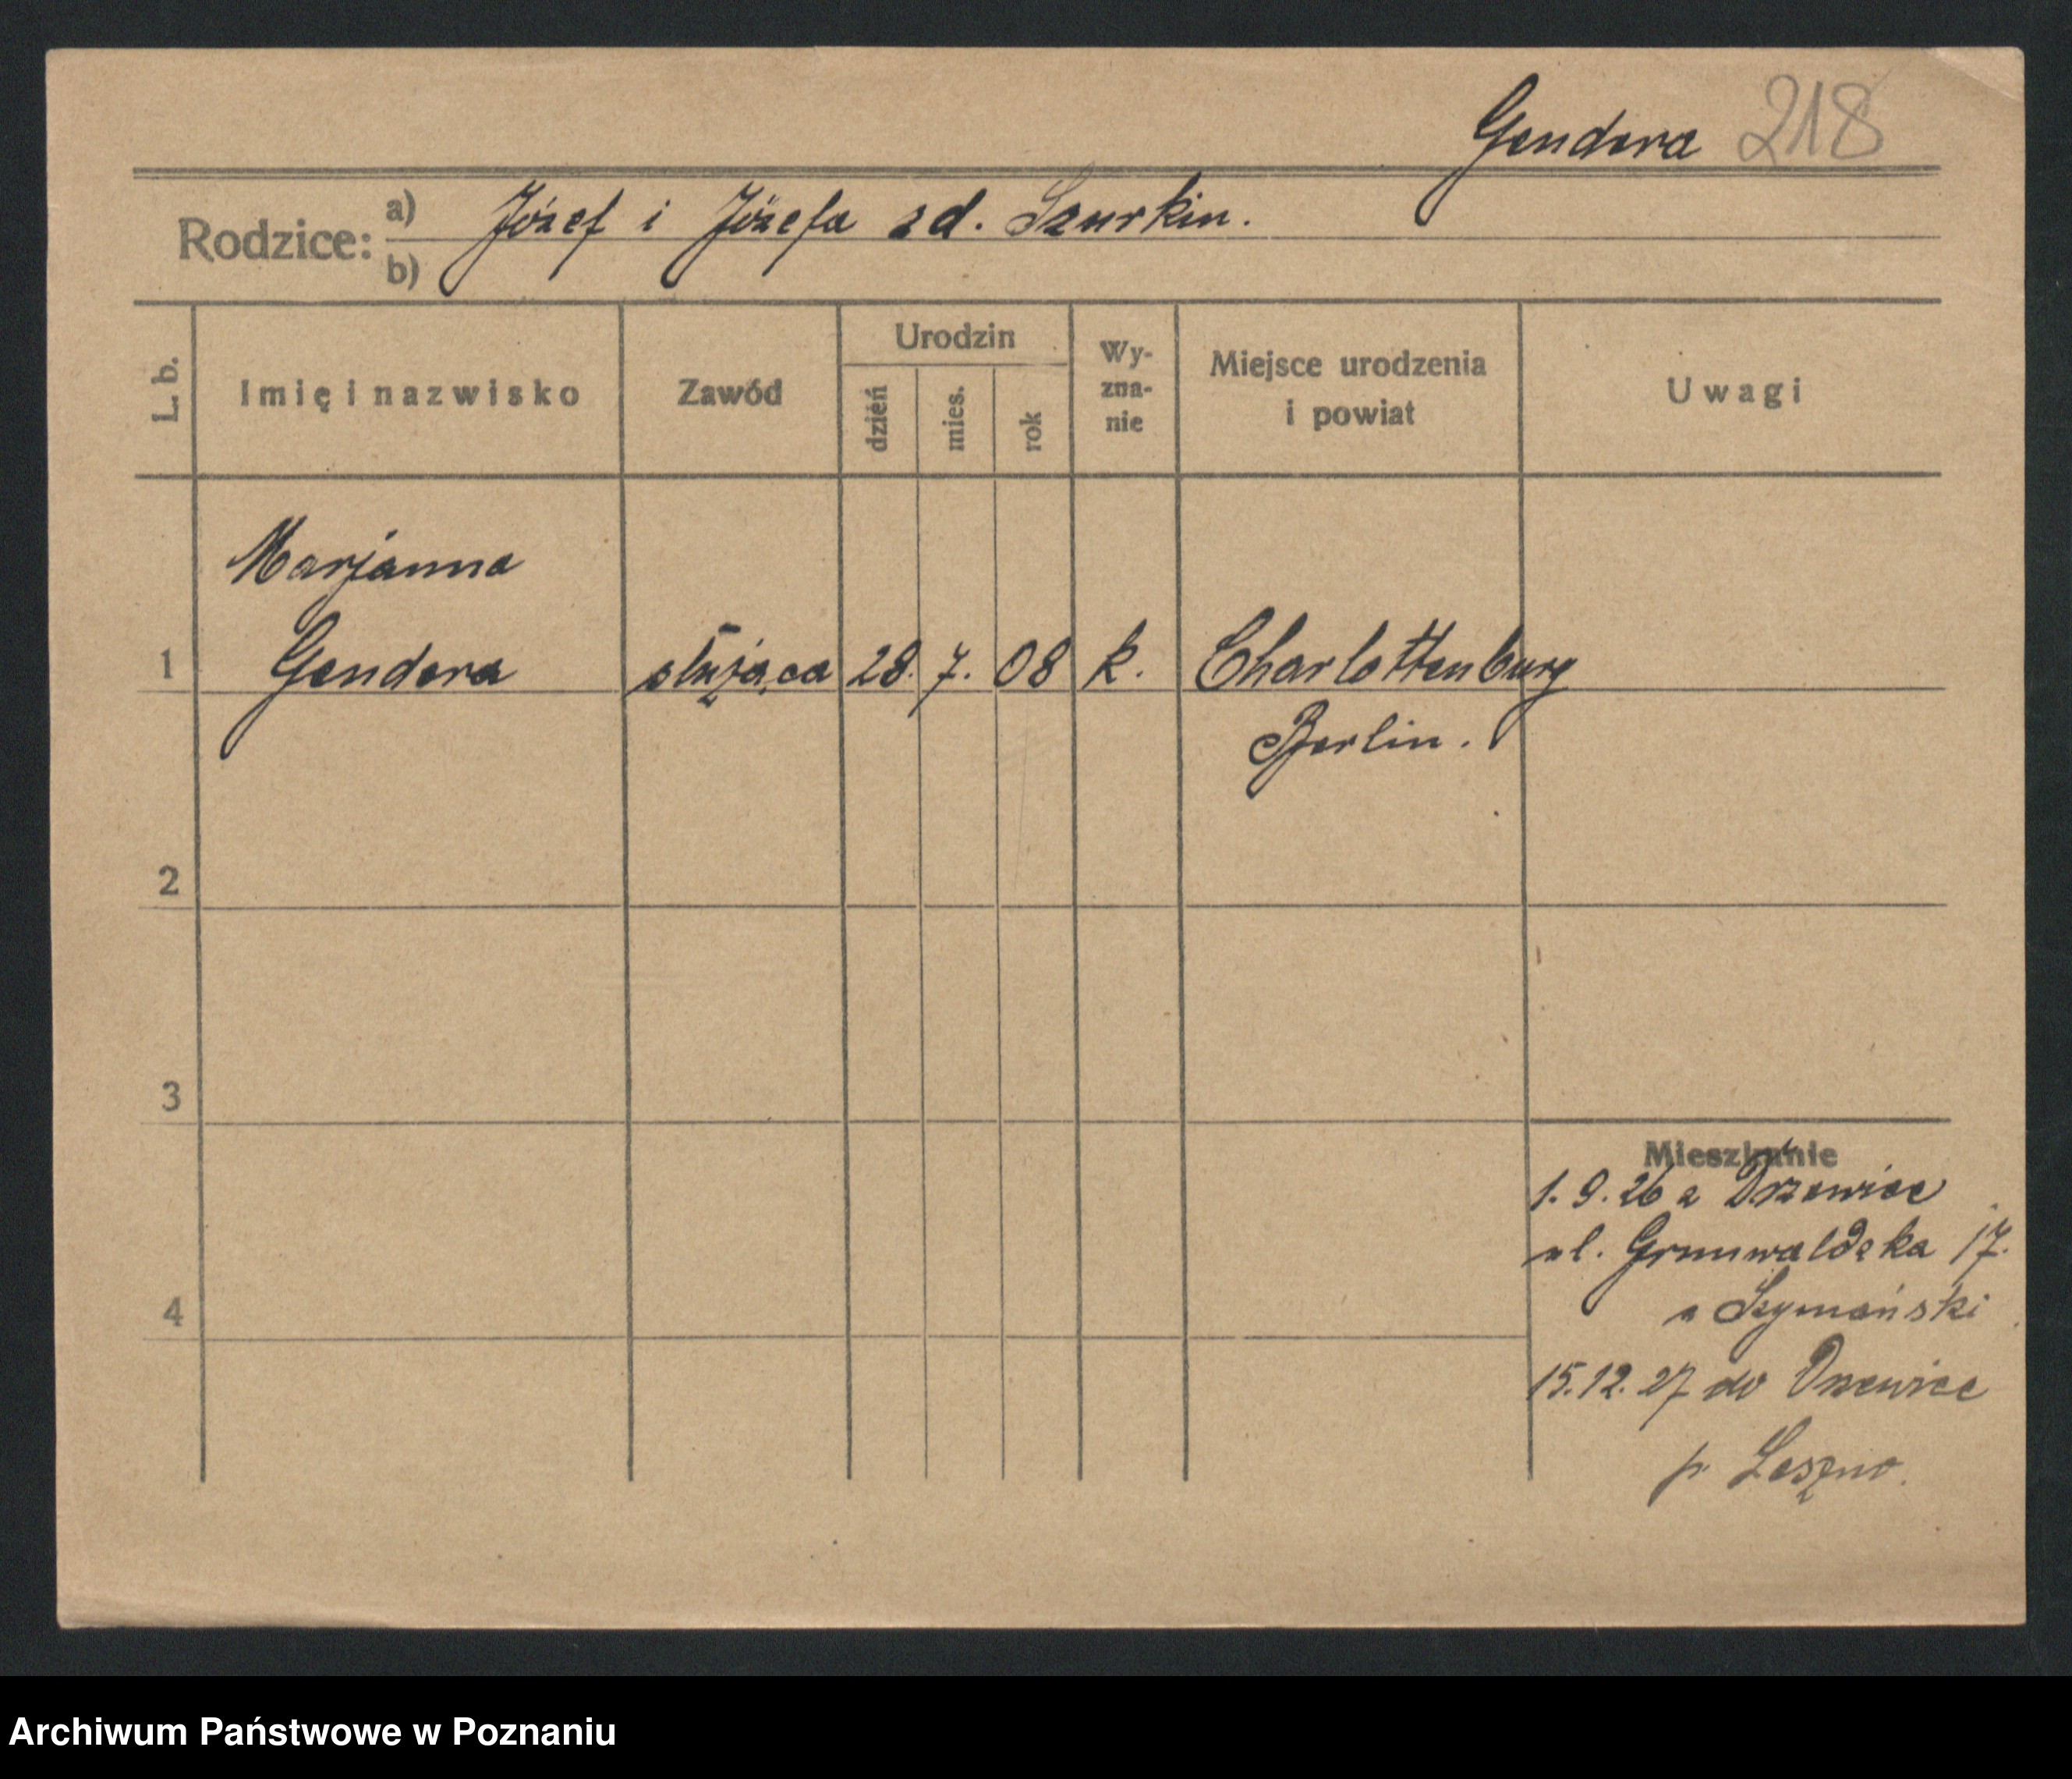 Gendera 218
Rodzice: a) Józef i Józefa zd. Szurkin.
b)
L. b.
Imię i nazwisko
Zawód
Urodzin
dzień
mies.
rok
Wy-
zna-
nie
Miejsce urodzenia
i powiat
Uwagi
Marjanna
1 Gendera służąca 28. 7. 08 k. Charlottenburg
Berlin.
2
3
4
Mieszkanie
1. 9. 26 z Drzewiec
ul. Grunwaldzka 17.
Szymański
15.12. 27 do Drzewiec
p. Leszno.
Archiwum Państwowe w Poznaniu